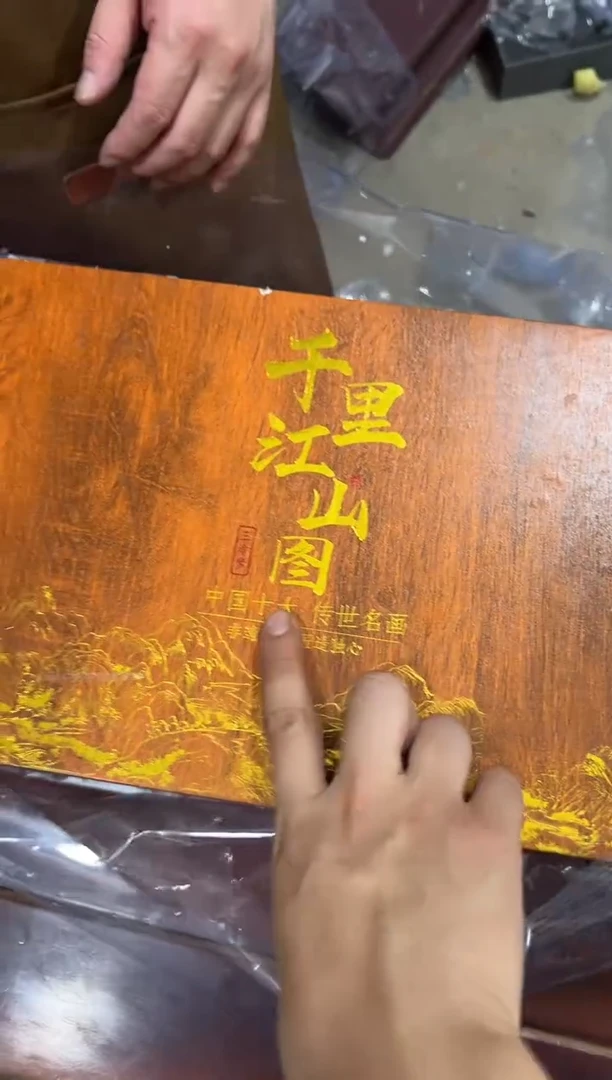 千里江山图
中国十大 传世名画